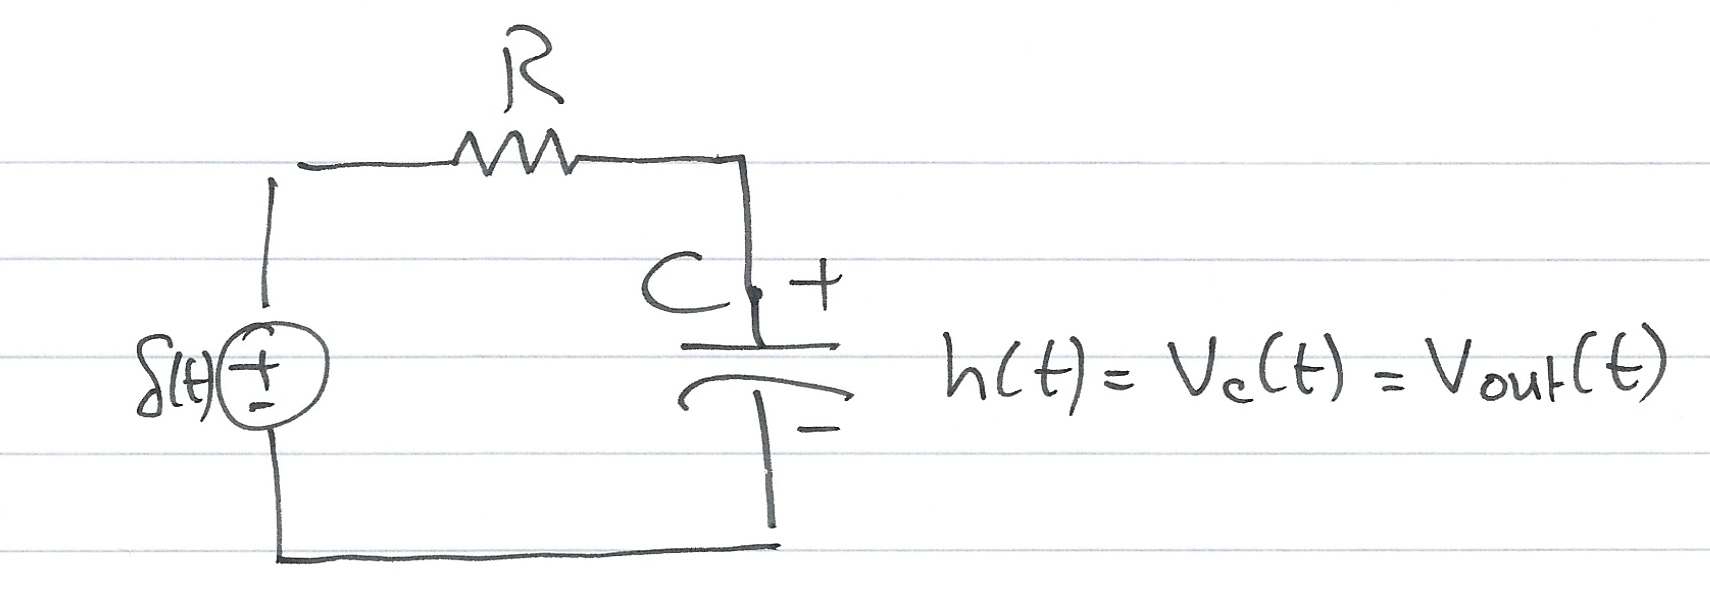 R
C +
δ(t) + -
-
h(t) = Vc(t) = Vout(t)